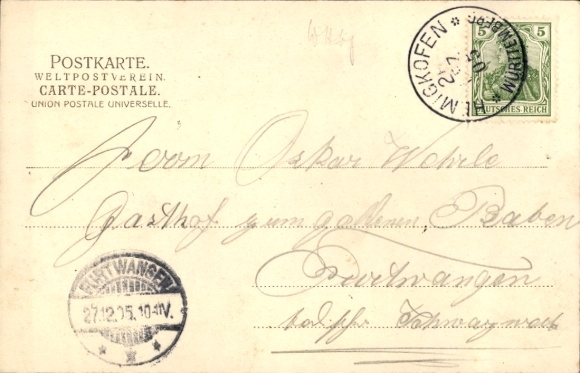 POSTKARTE.
WELTPOSTVEREIN.
CARTE-POSTALE.
UNION POSTALE UNIVERSELLE.
HEMIGKOFEN * WÜRTTEMBERG *
5 5
DEUTSCHES REICH
Herrn Oskar Wehrle
Gasthof zum goldenen Raben
Furtwangen
badische Schwarzwald
FURTWANGEN
27.12.05. 10-11V.